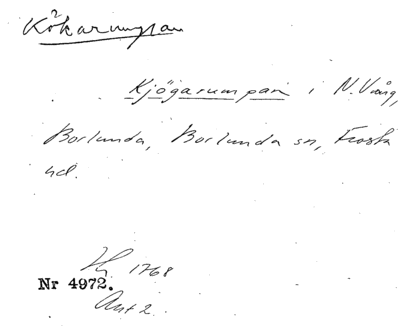 Kökarumpan
Kjögarumpan i N. Vång,
Borlunda, Borlunda sn, Frosta
hd.
1768
Nr 4972.
Ant 2.